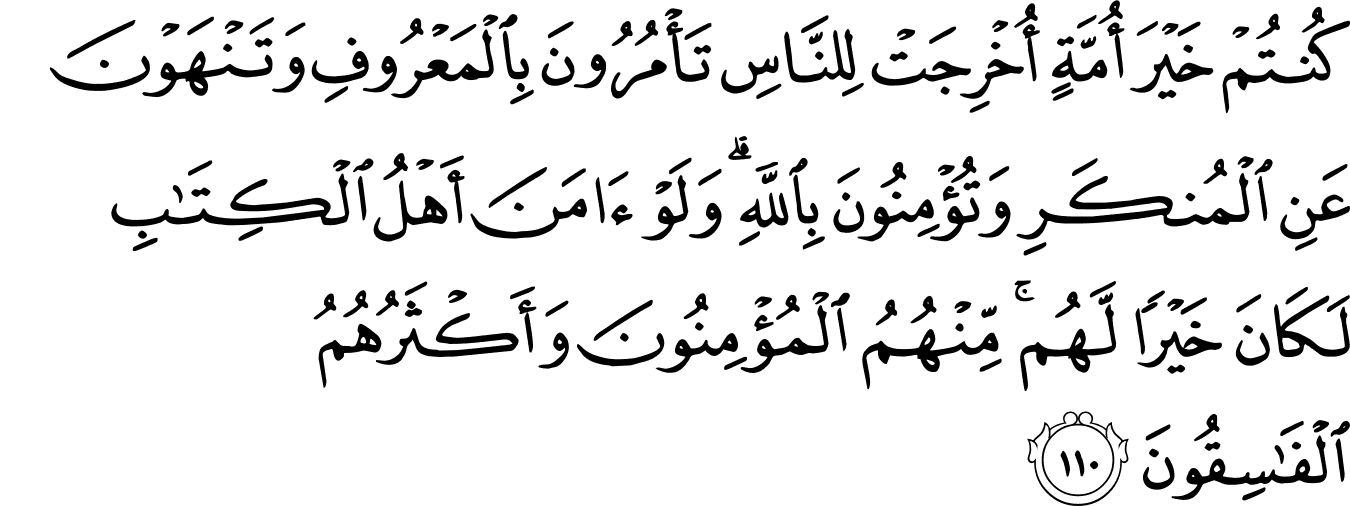 كُنتُمْ خَيْرَ أُمَّةٍ أُخْرِجَتْ لِلنَّاسِ تَأْمُرُونَ بِٱلْمَعْرُوفِ وَتَنْهَوْنَ
عَنِ ٱلْمُنكَرِ وَتُؤْمِنُونَ بِٱللَّهِ ۗ وَلَوْ ءَامَنَ أَهْلُ ٱلْكِتَـٰبِ
لَكَانَ خَيْرًا لَّهُم ۚ مِّنْهُمُ ٱلْمُؤْمِنُونَ وَأَكْثَرُهُمُ
ٱلْفَـٰسِقُونَ ١١٠